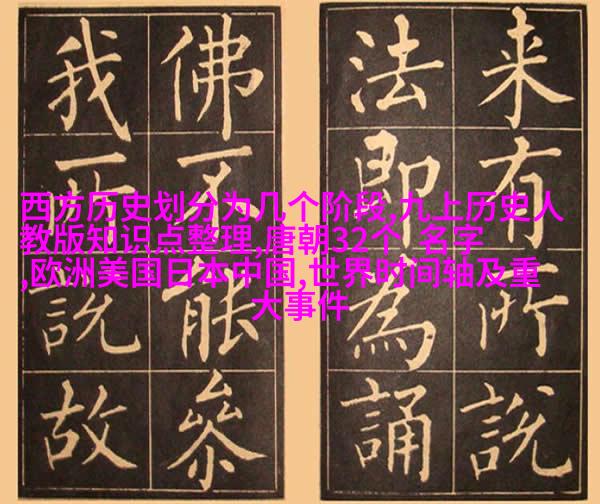 西方历史划分为几个阶段,九上历史人
教版知识点整理,唐朝32个 名字
,欧洲美国日本中国,世界时间轴及重
大事件
来有所說
法即為誦
佛不能參
我說故